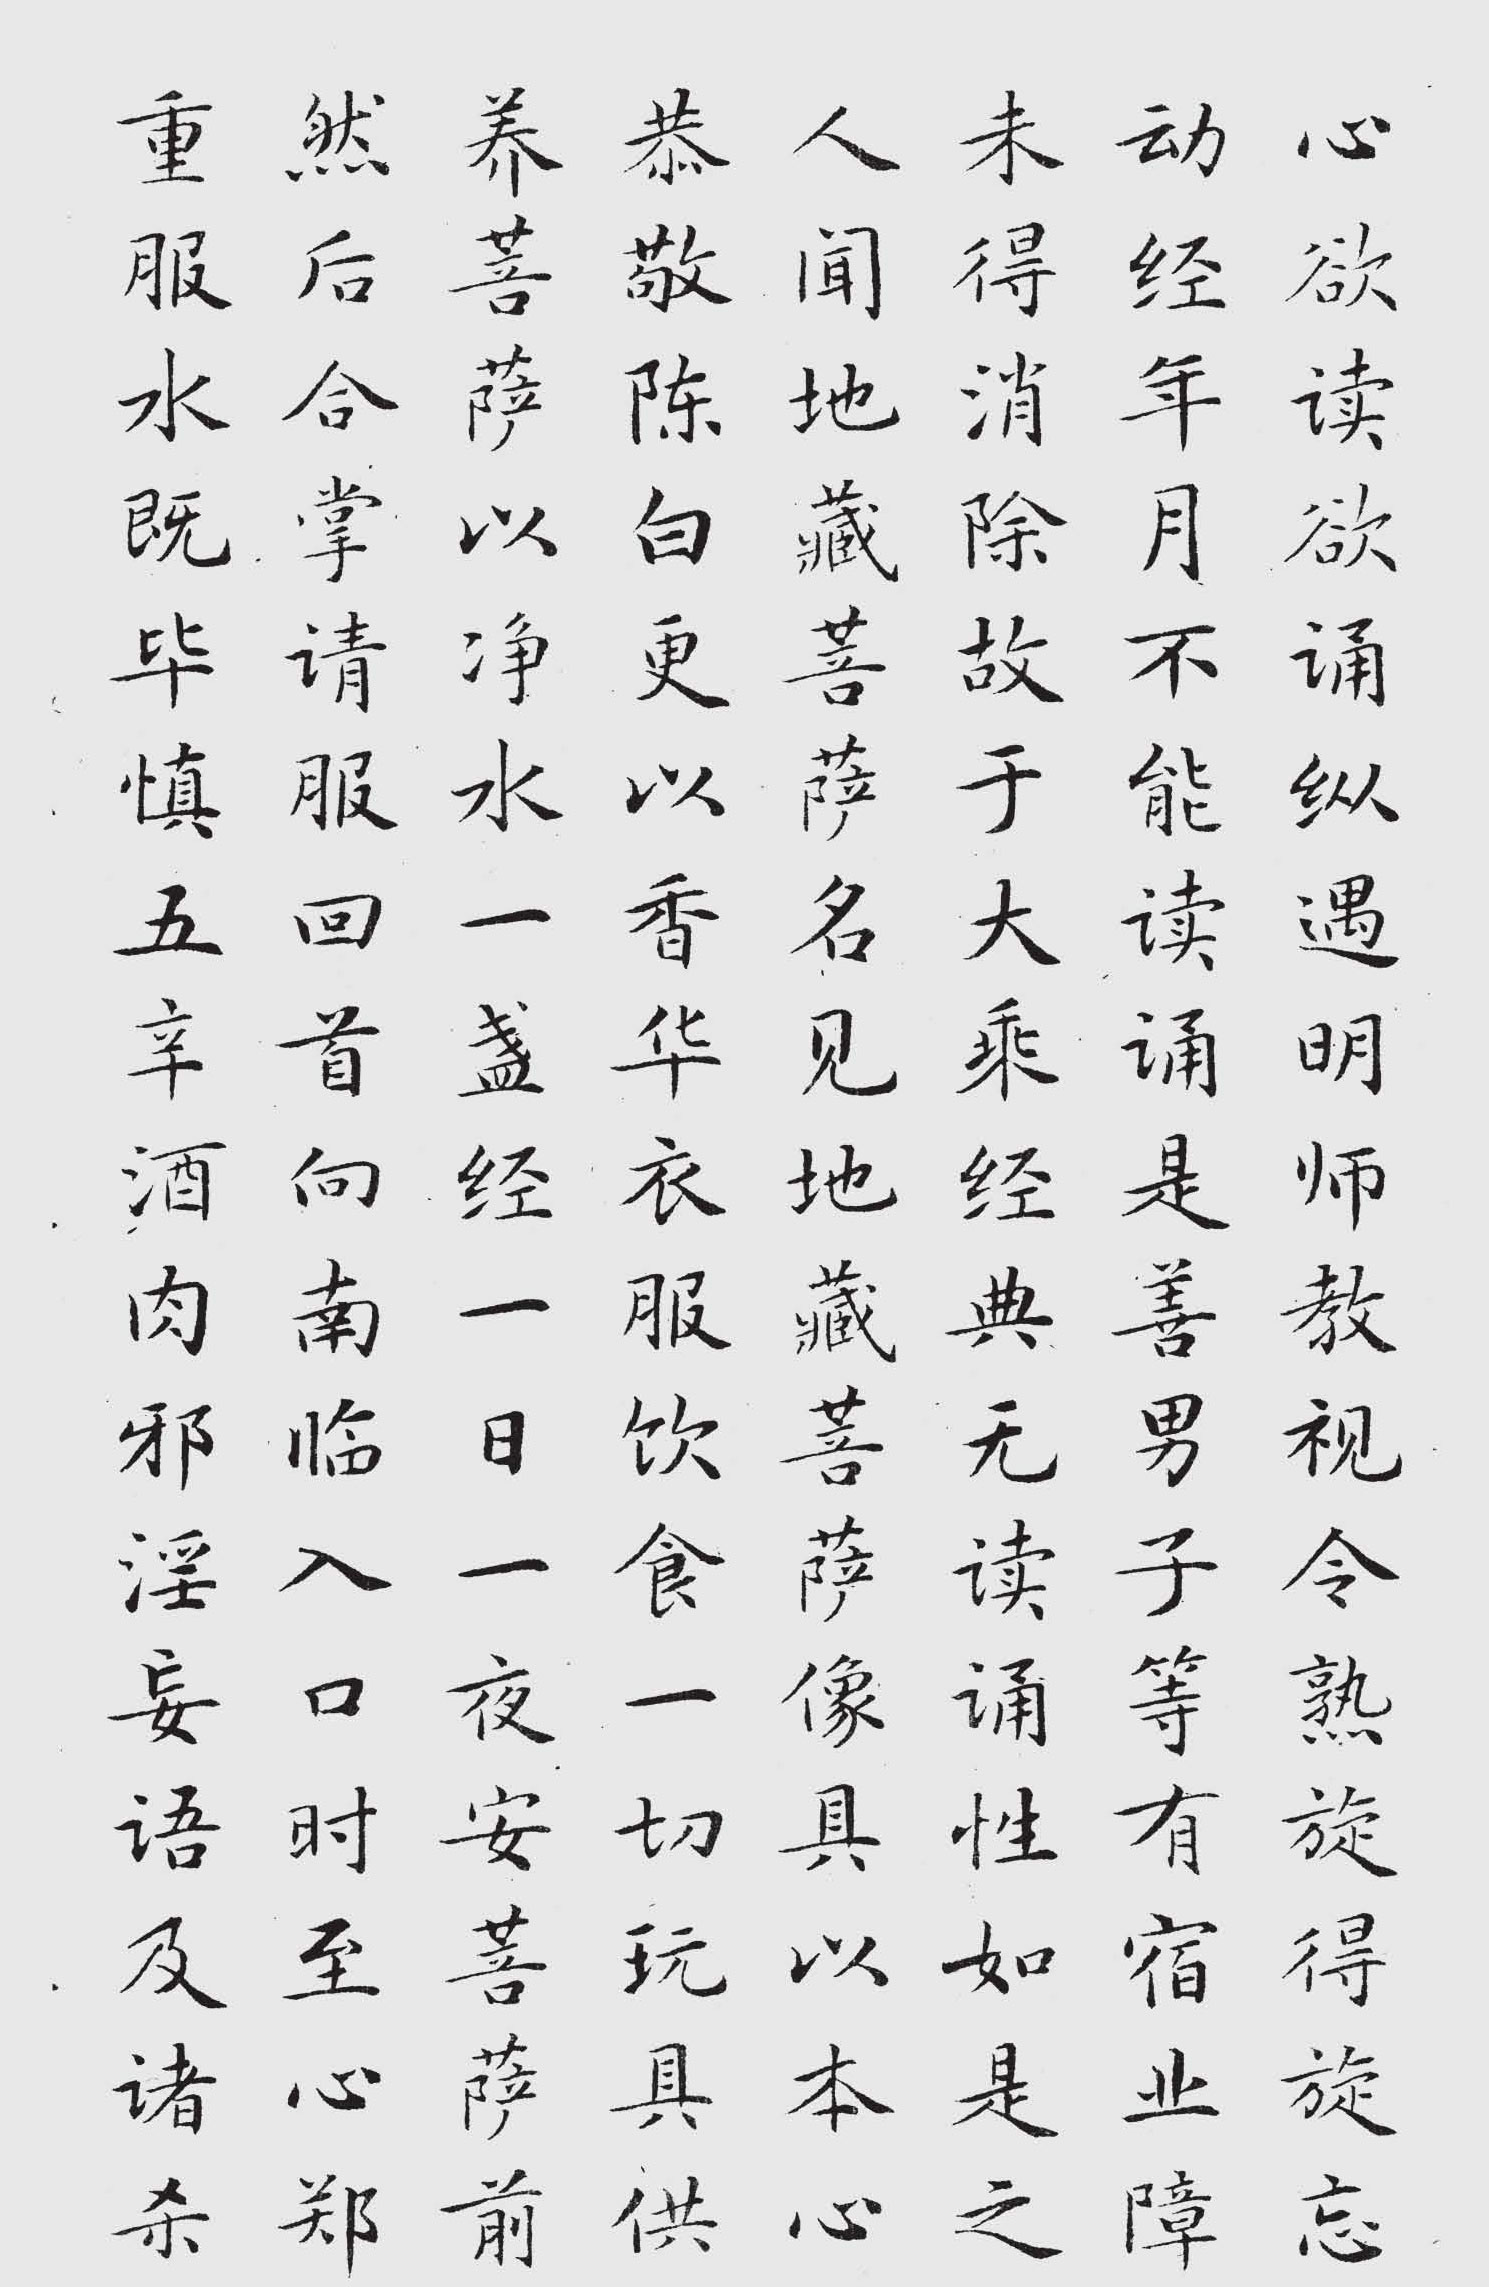 心欲读欲诵纵遇明师教视令熟旋得旋忘
动经年月不能读诵是善男子等有宿业障
未得消除故于大乘经典无读诵性如是之
人闻地藏菩萨名见地藏菩萨像具以本心
恭敬陈白更以香华衣服饮食一切玩具供
养菩萨以净水一盏经一日一夜安菩萨前
然后合掌请服回首向南临入口时至心郑
重服水既毕慎五辛酒肉邪淫妄语及诸杀